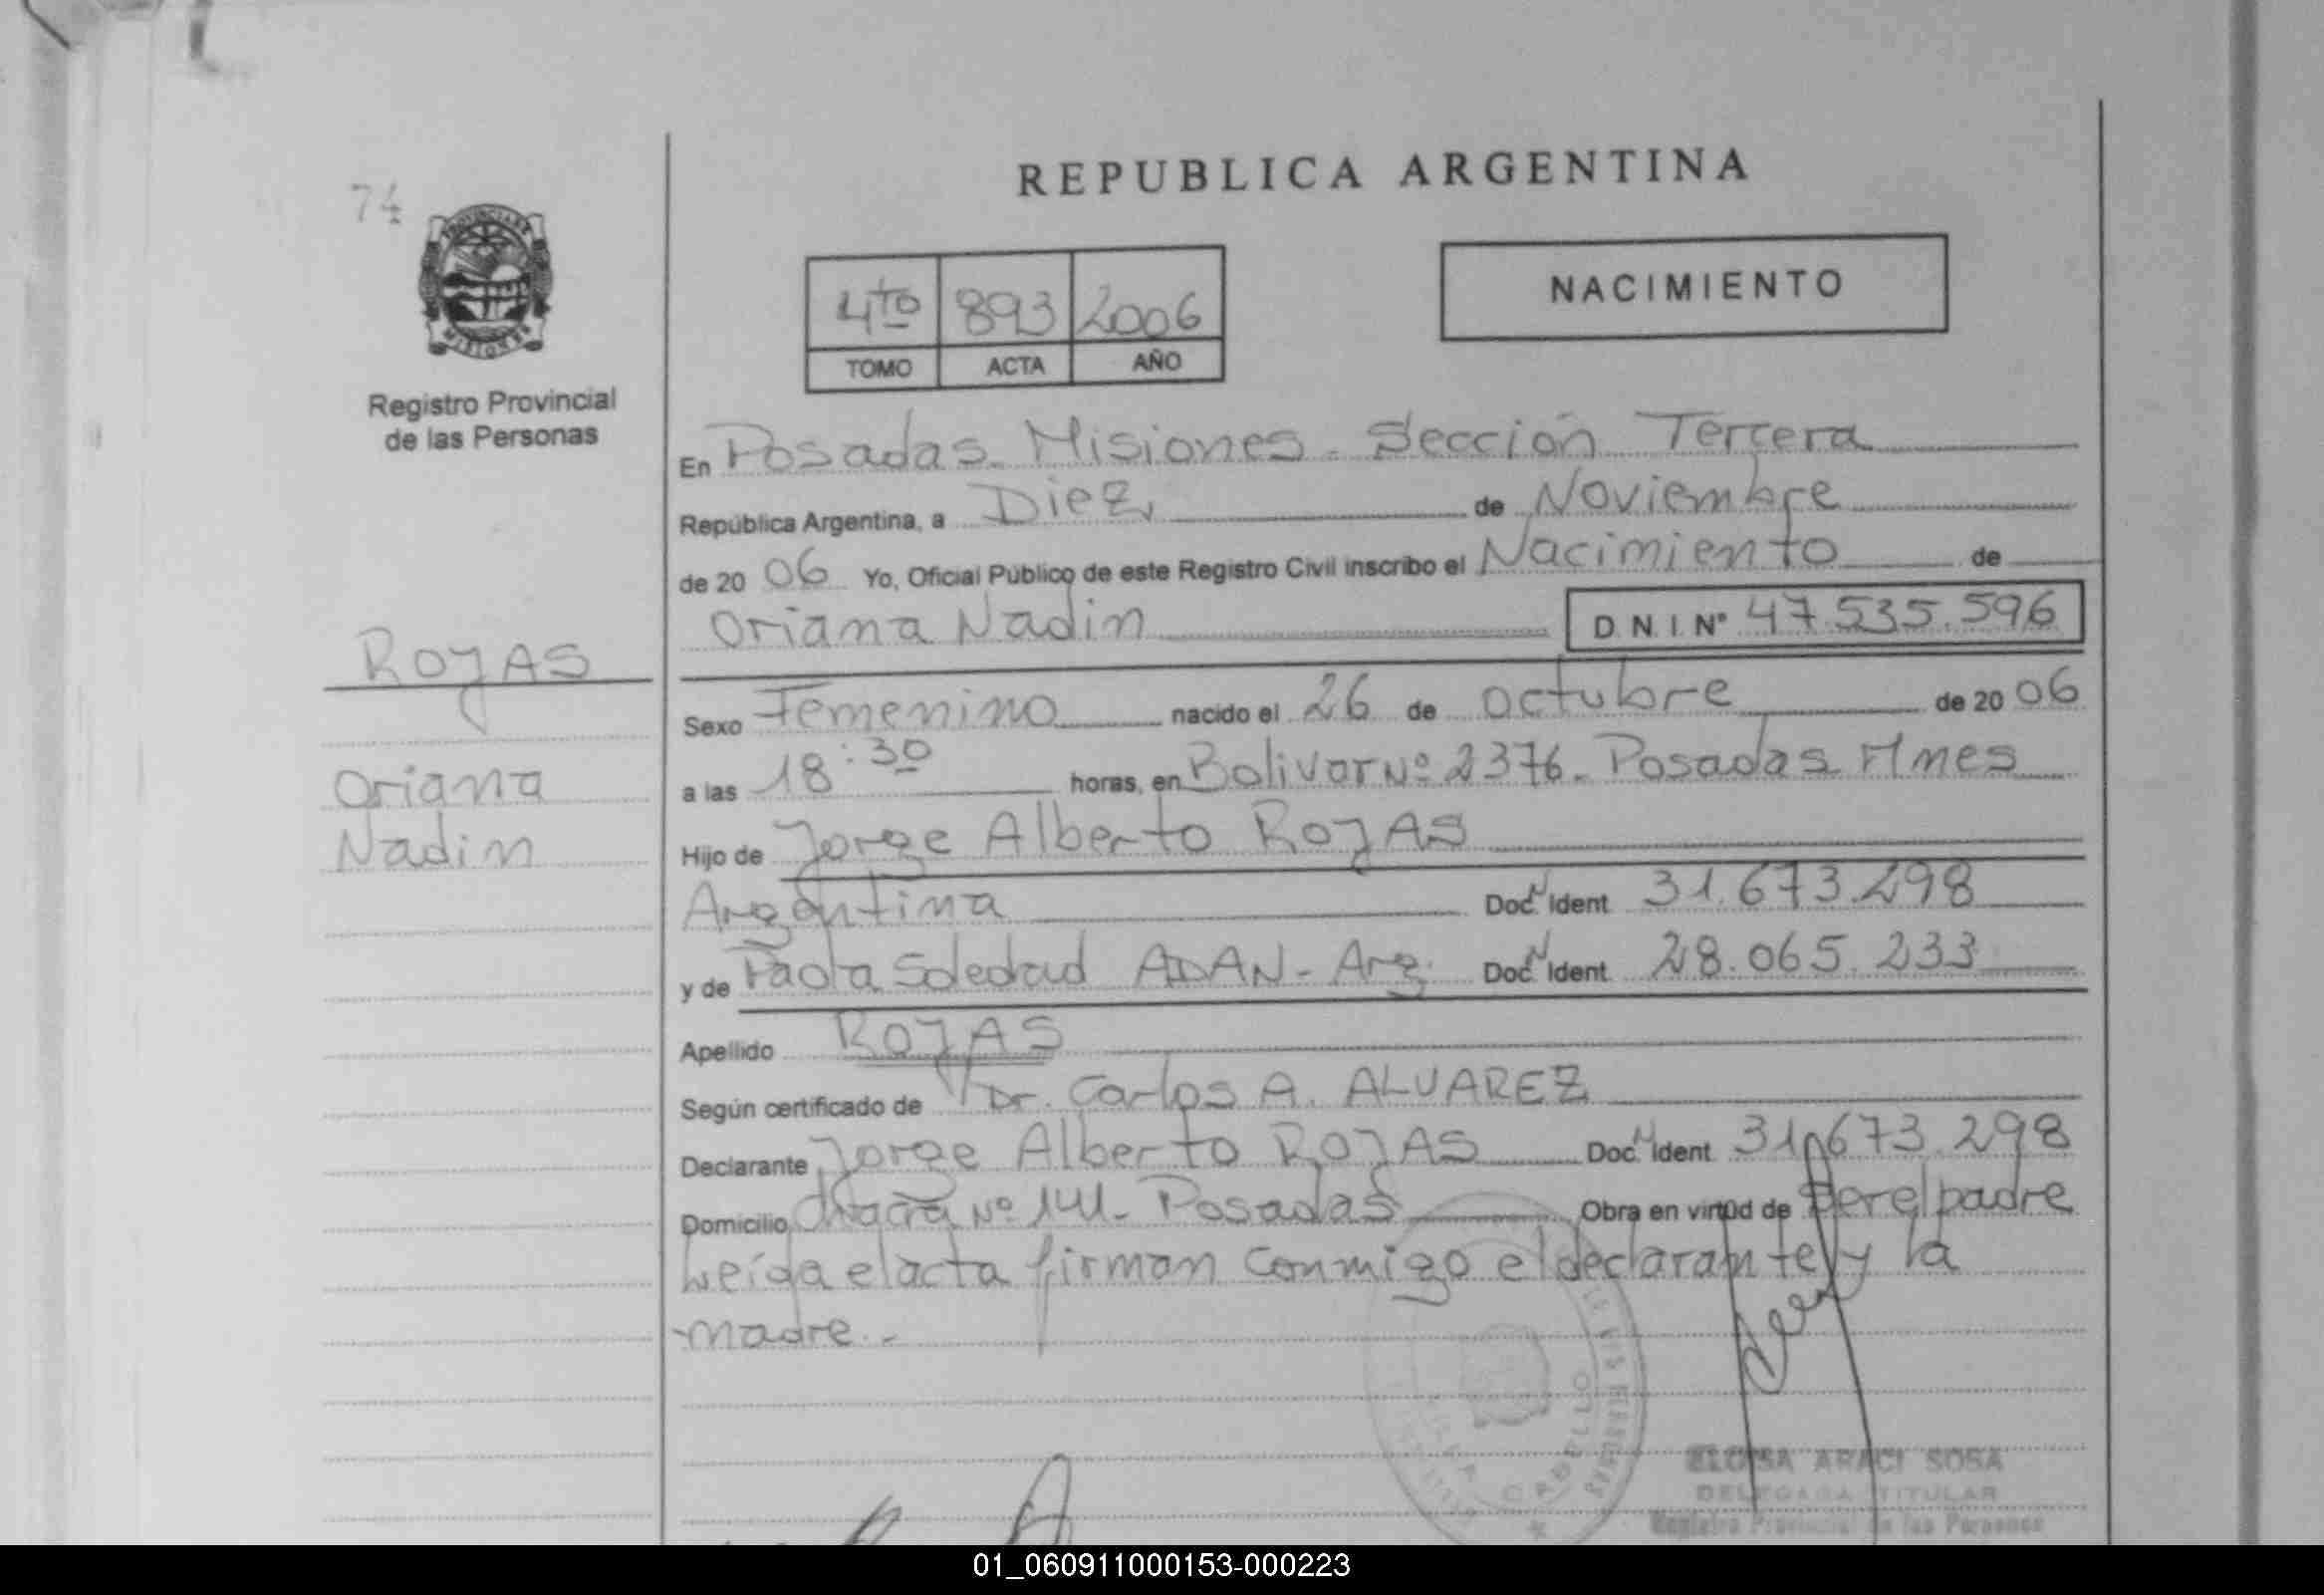 REPUBLICA ARGENTINA
74
NACIMIENTO
4to 893 2006
TOMO ACTA AÑO
Registro Provincial
de las Personas
En Posadas Misiones - Sección Tercera
República Argentina, a Diez, de Noviembre
de 20 06 Yo, Oficial Público de este Registro Civil inscribo el Nacimiento de
Oriana Nadin D.N.I. Nº 47.535.596
ROJAS
Oriana
Nadin
Sexo Femenino nacido el 26 de octubre de 20 06
a las 18:30 horas, en Bolivar Nº 2376 - Posadas Mnes
Hijo de Jorge Alberto ROJAS
Argentina Doc. Ident. 31.673.298
y de Paola Soledad ADAN - Arg. Doc. Ident. 28.065.233
Apellido ROJAS
Según certificado de Dr. Carlos A. ALVAREZ
Declarante Jorge Alberto ROJAS Doc. Ident. 31.673.298
Domicilio Chacra Nº 141 - Posadas Obra en virtud de Ser el padre
Leída el acta firman conmigo el declarante y la
madre. -
ELOISA ARACI SOSA
DELEGADA TITULAR
Registro Provincial de las Personas
01_060911000153-000223